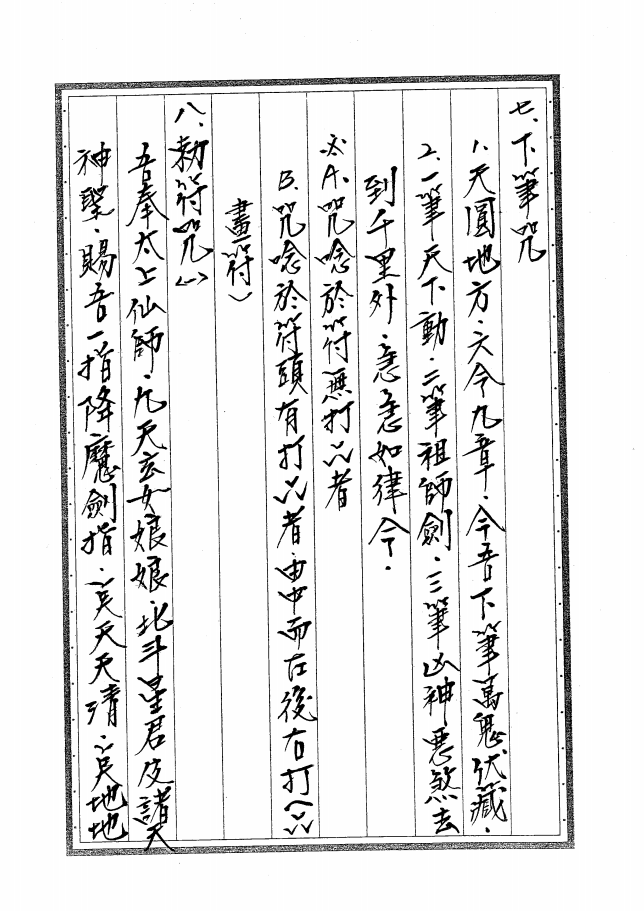 七、下筆咒
1.天圓地方、六令九章、今吾下筆萬鬼伏藏、
2.一筆天下動、二筆祖師劍、三筆凶神惡煞去
到千里外、急急如律令、
※A.咒唸於符無打ㄙㄙㄙ者
B.咒唸於符頭有打ㄙㄙㄙ者、由中而左後右打(ㄙㄙㄙ
畫符)
八、勅符咒(一)
吾奉太上仙師、九天玄女娘娘、北斗星君及諸天
神聖、賜吾一指降魔劍指、一之天天清、二之地地